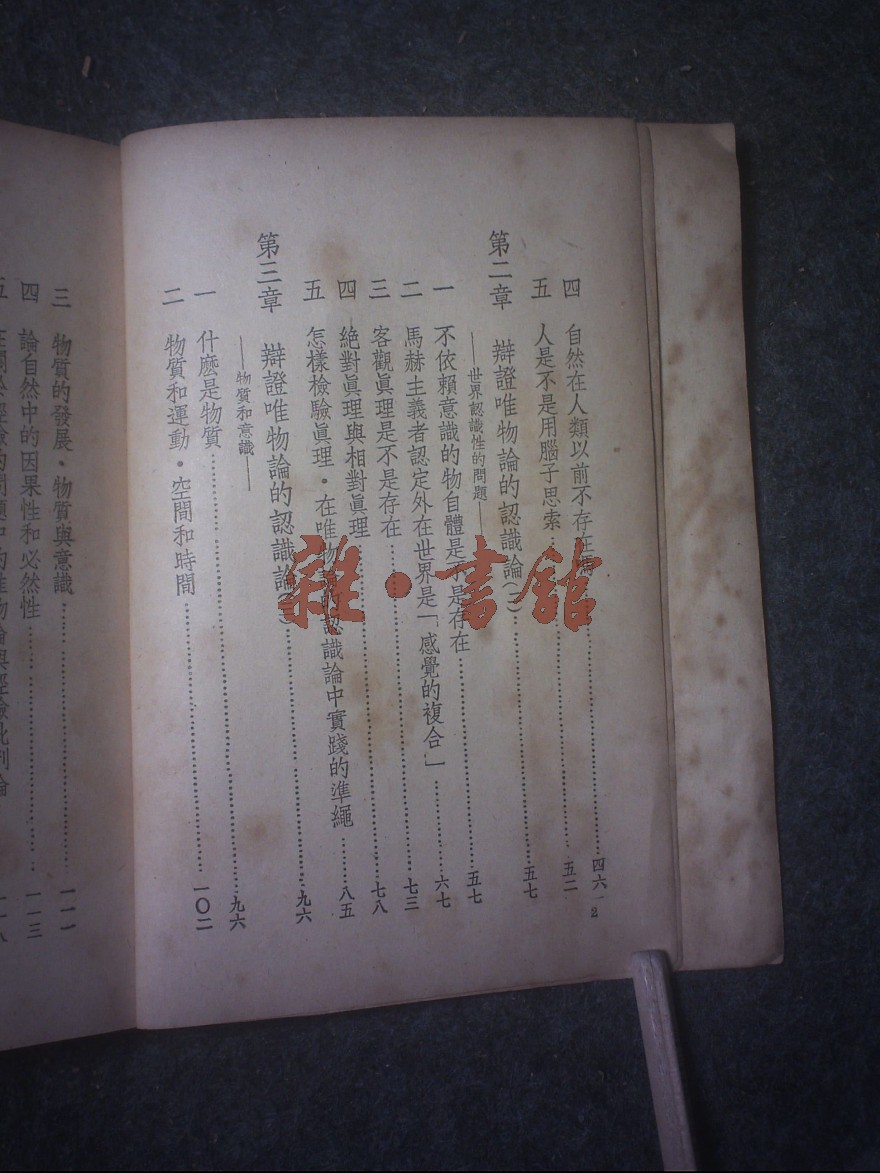 四 自然在人類以前不存在……四六
2
五 人是不是用腦子思索……五二
第二章 辯證唯物論的認識論(一)……五七
——世界認識性的問題——
一 不依賴意識的物自體是不是存在……五七
二 馬赫主義者認定外在世界是「感覺的複合」……六七
三 客觀眞理是不是存在……七三
四 絕對眞理與相對眞理……七八
五 怎樣檢驗眞理・在唯物論的認識論中實踐的準繩……八五
第三章 辯證唯物論的認識論……九六
——物質和意識——
一 什麼是物質……九六
二 物質和運動・空間和時間……一〇二
三 物質的發展・物質與意識……一一一
四 論自然中的因果性和必然性……一一三
五 的問題中的唯物論與經驗批判論
雜・書館